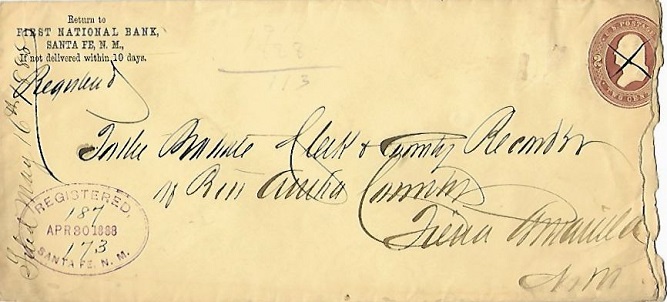 Return to
FIRST NATIONAL BANK,
SANTA FE, N. M.,
If not delivered within 10 days.
U.S. POSTAGE
TWO CENTS
Registered
To the Probate Clerk & County Recorder
of Rio Arriba County
Tierra Amarilla
N. M.
REGISTERED,
187
APR 30 1888
173
SANTA FE, N. M.
Filed May 16th 1888
113